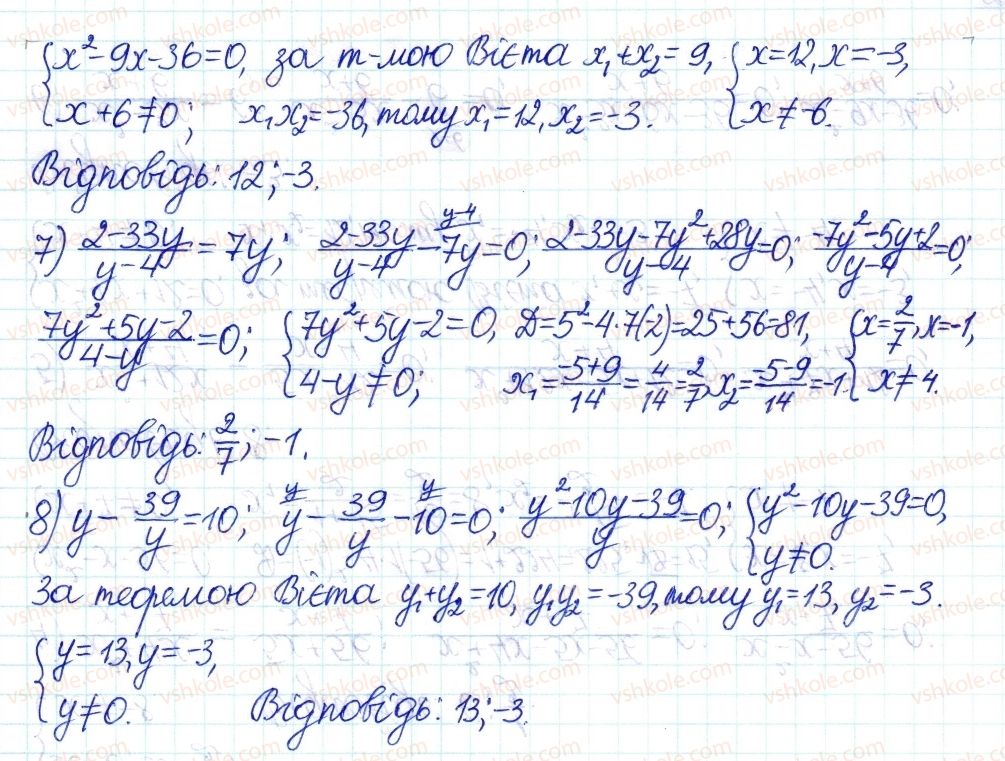 {x²-9x-36=0, за т-мою Вієта x₁+x₂=9, {x=12, x=-3,
x+6≠0; x₁x₂=-36, тому x₁=12, x₂=-3. x≠-6.
Відповідь: 12; -3.
7) (2-33y)/(y-4) = 7y; (2-33y)/(y-4) - 7y^(y-4) = 0; (2-33y-7y²+28y)/(y-4) = 0; (-7y²-5y+2)/(y-4) = 0;
(7y²+5y-2)/(4-y) = 0; {7y²+5y-2=0, D=5²-4·7(2)=25+56=81, {x=2/7, x=-1,
4-y≠0; x₁=(-5+9)/14=4/14=2/7, x₂=(-5-9)/14=-1. x≠4.
Відповідь: 2/7; -1.
8) y - 39/y = 10; y^(y) - 39/y - 10^(y) = 0; (y²-10y-39)/y = 0; {y²-10y-39=0,
y≠0.
За теоремою Вієта y₁+y₂=10, y₁y₂=-39, тому y₁=13, y₂=-3.
{y=13, y=-3,
y≠0. Відповідь: 13; -3.